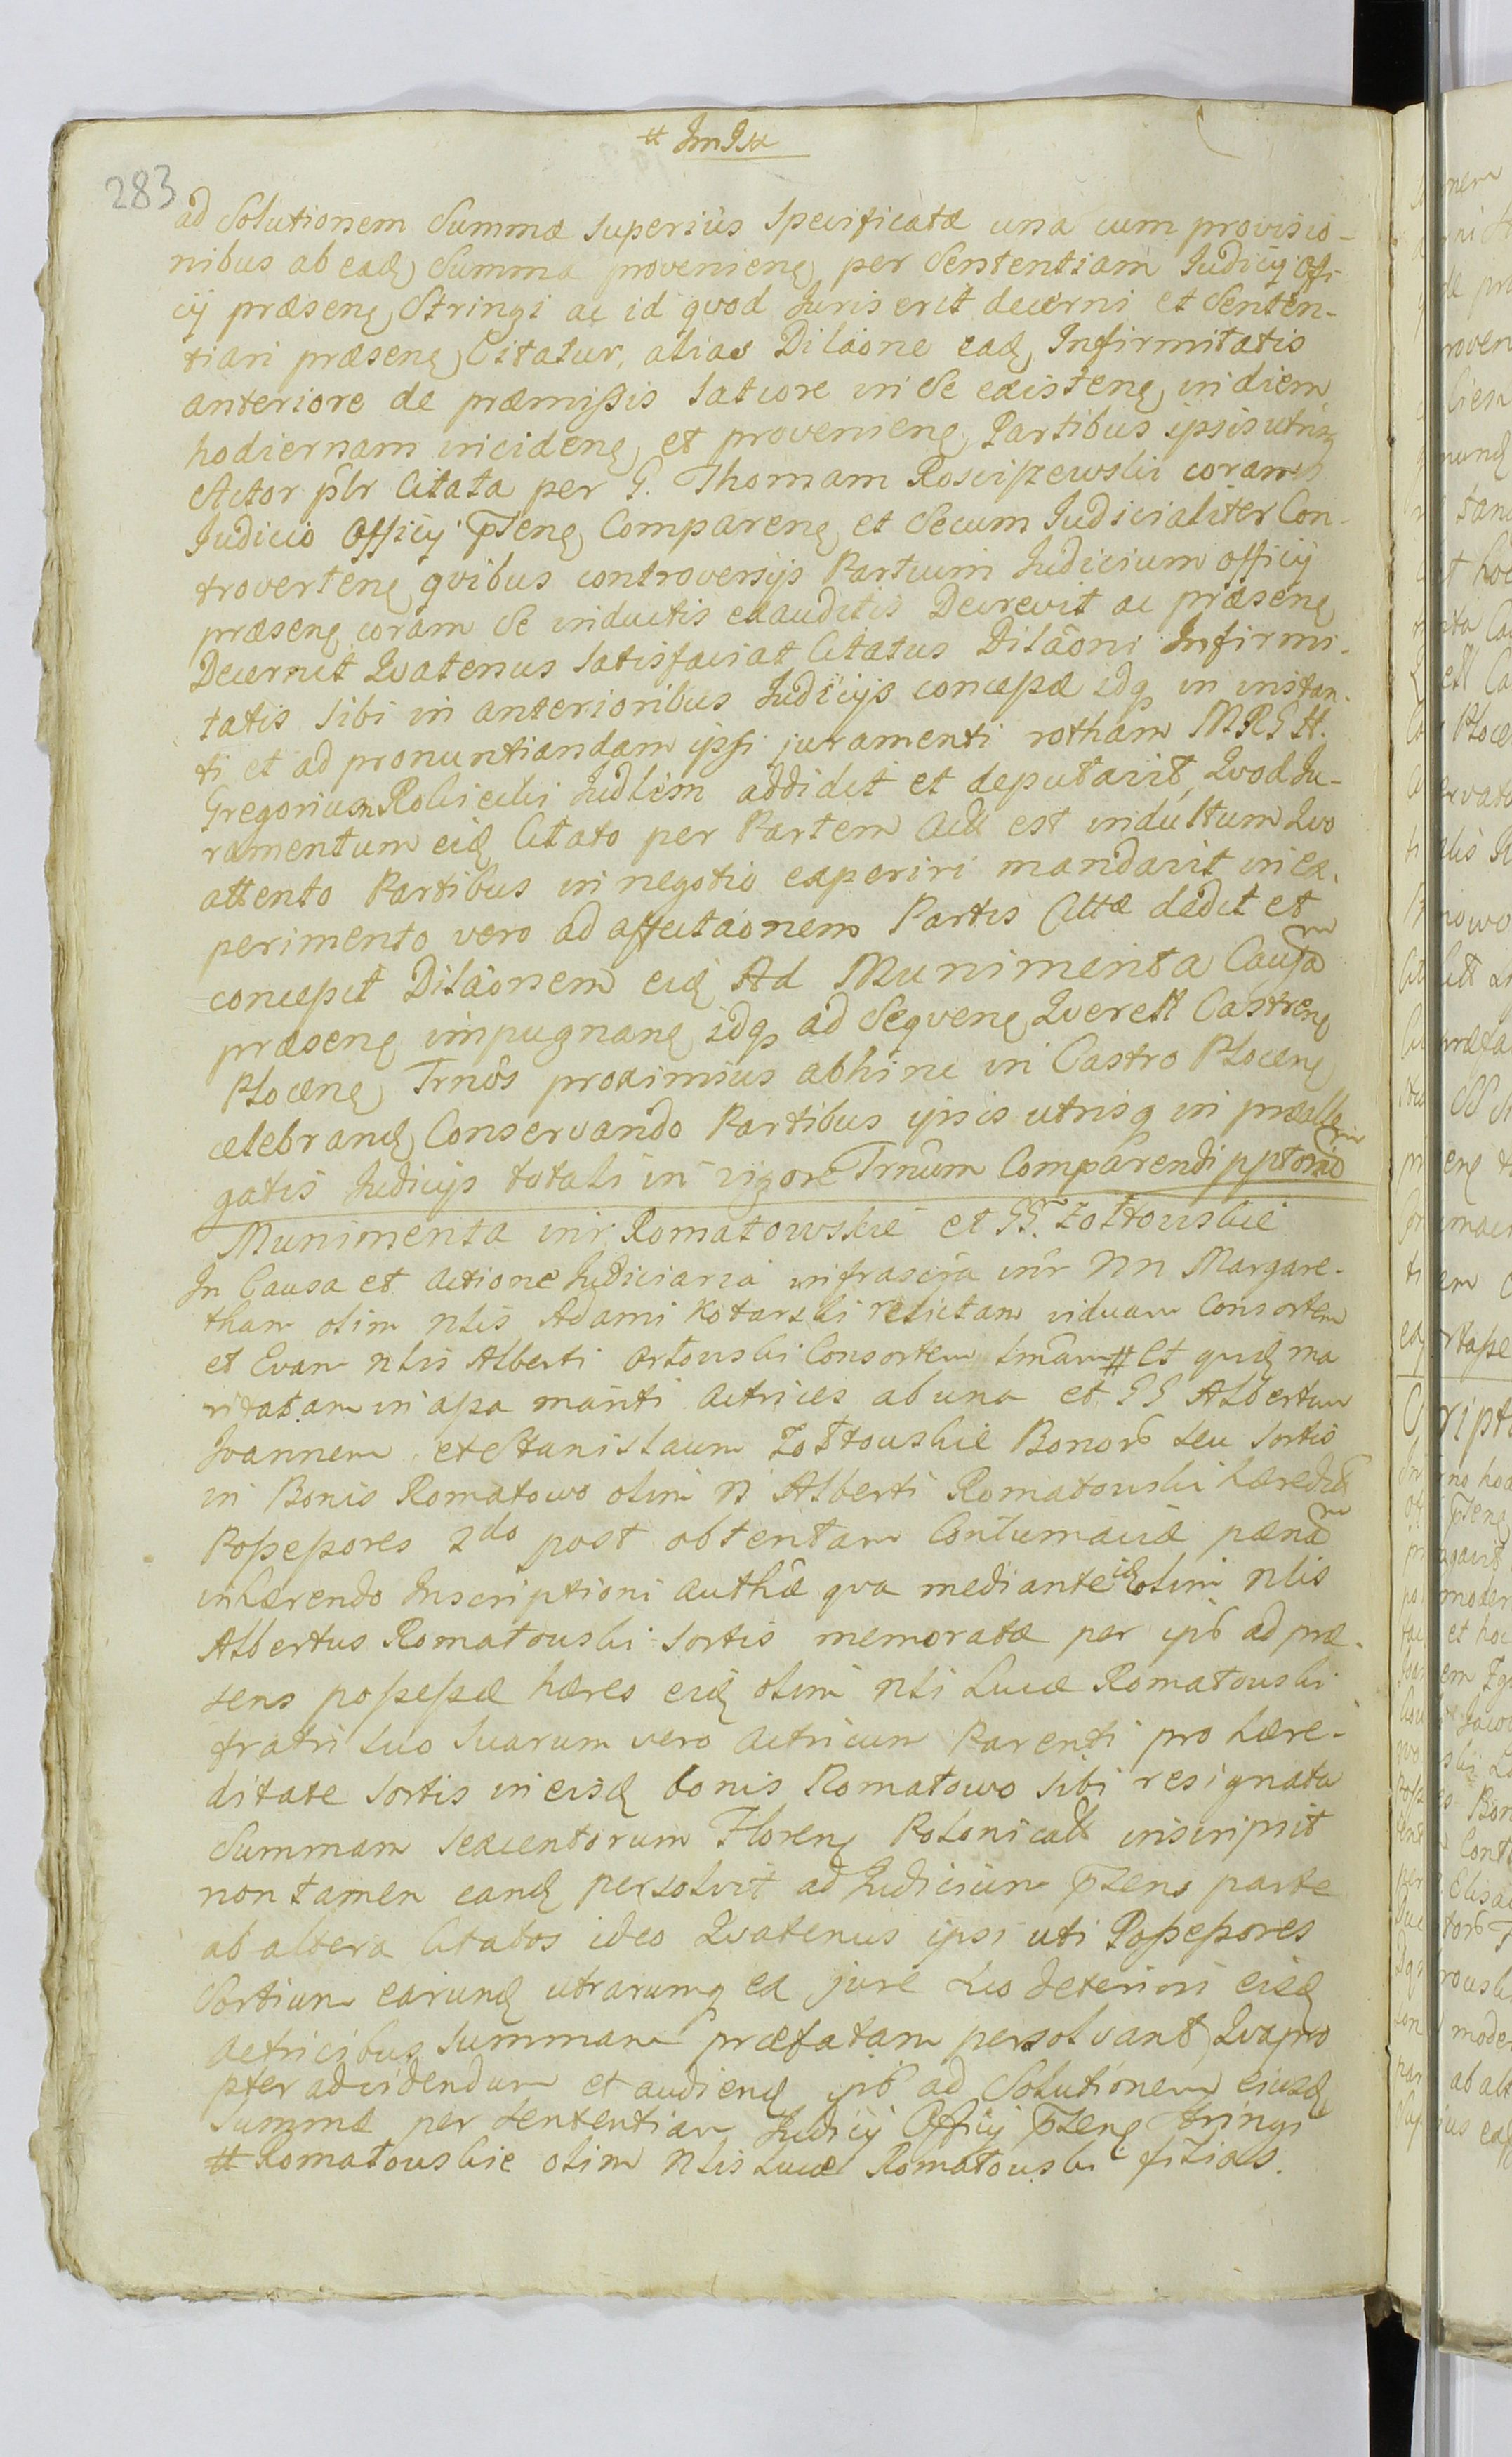 283
ad Solutionem Summæ superiùs specificatæ una cum provisio-
nibus ab eadꝫ Summa provenienꝫ per Sententiam Judicij Offi-
cij præsenꝫ Stringi ac id quod Juris erit decerni et Senten-
tiari præsenꝫ Citatur, alias Dilãone eadꝫ Infirmitatis
anteriore de præmißis latiore in se existenꝫ in diem
hodiernam incidenꝫ et provenienꝫ Partibus ipsis utrisqꝫ
Actor plr Citata per G. Thomam Rosciszewski coram
Judicio Officij p̃senꝫ Comparenꝫ et Secum Judicialiter Con-
trovertenꝫ quibus controversijs Partium Judicium officij
præsenꝫ coram Se inductis exauditis Decrevit ac præsenꝫ
Decernit Quatenus Satisfaciat Citatus Dilãoni Infirmi-
tatis sibi in anterioribus Judicijs concepæ idqꝫ in instan-
ti et ad pronuntiandam ipsi juramenti rotham MRGH.
Gregorium Judlẽm addidit et deputavit, Quod Ju-
ramentum eidꝫ Citato per Partem est indultum Quo
attento Partibus in negotio experiri mandavit in ex-
perimento vero ad affectãonem Partis Cittæ dedit et
concepit Dilãonem eidꝫ Ad Munimenta Causam
præsenꝫ impugnanꝫ idqꝫ ad Sequenꝫ Querell Castrenꝫ
Plocenꝫ Trnôs proximius abhinc in Castro Plocenꝫ
celebrandꝫ Conservando Partibus ipsis utrisqꝫ in præalle-
gatis Judicijs totali in vigore Trnûm Comparendi pptorium
Munimenta inr Romatowskie et GG. Zołtowskie
In Causa et actione Judiciaria infrascra inr Nn Margare-
tham olim nlis Adami Kotarski relictam viduam Consortem
et Evam nlis Alberti Ortowski Consortem # et quidꝫ ma
ritatam in asa mariti actrices ab una et GG Albertum
Joannem et Stanislaum Zołtowskie Bonor seu sortis
in Bonis Romatowo olim N Alberti Romatowski hæredit
Poßeßores 2do post obtentam Contumaciæ pænam
inhærendo Inscriptioni authcæ qva mediante idꝫ olim nlis
Albertus Romatowski sortis memoratæ per ip̃s ad præ-
sens poßeßæ hæres eidꝫ olim nli Lucæ Romatowski
fratri suo suarum vero actricum Parenti pro hære-
ditate sortis in eisdꝫ bonis Romatowo sibi resignata
Summam sexcentorum Florenꝫ Polonicall inscripsit
non tamen eandꝫ persolvit ad Judicium p̃sens parte
ab altera Citatos ideo Quatenus ipsi uti Poßeßores
Sortium earundꝫ utrarumqꝫ ex jure suo deteriori eisdꝫ
actricibus summam præfatam persolvant, Quapro
pter ad videndum et audiendꝫ ip̃s ad Solutionem eiusdꝫ
Summæ per sententiam Judicij Officij p̃senꝫ stringi
# Romatowskie olim Nlis Lucæ Romatowski filias.